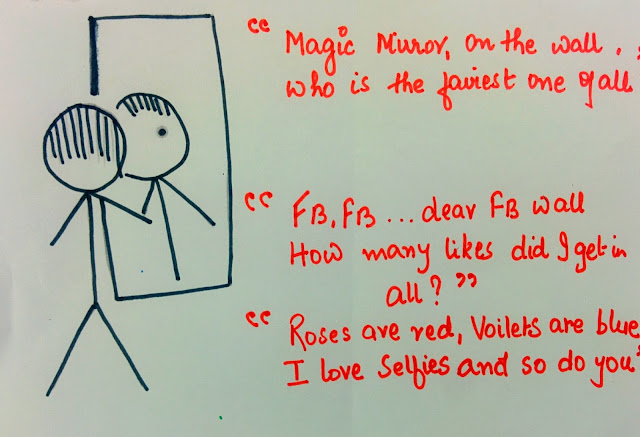 “ Magic Mirror, on the wall . .
who is the fairest one of all
“ FB, FB ... dear FB wall
How many likes did I get in
all? ”
“ Roses are red, Voilets are blue
I love Selfies and so do you”